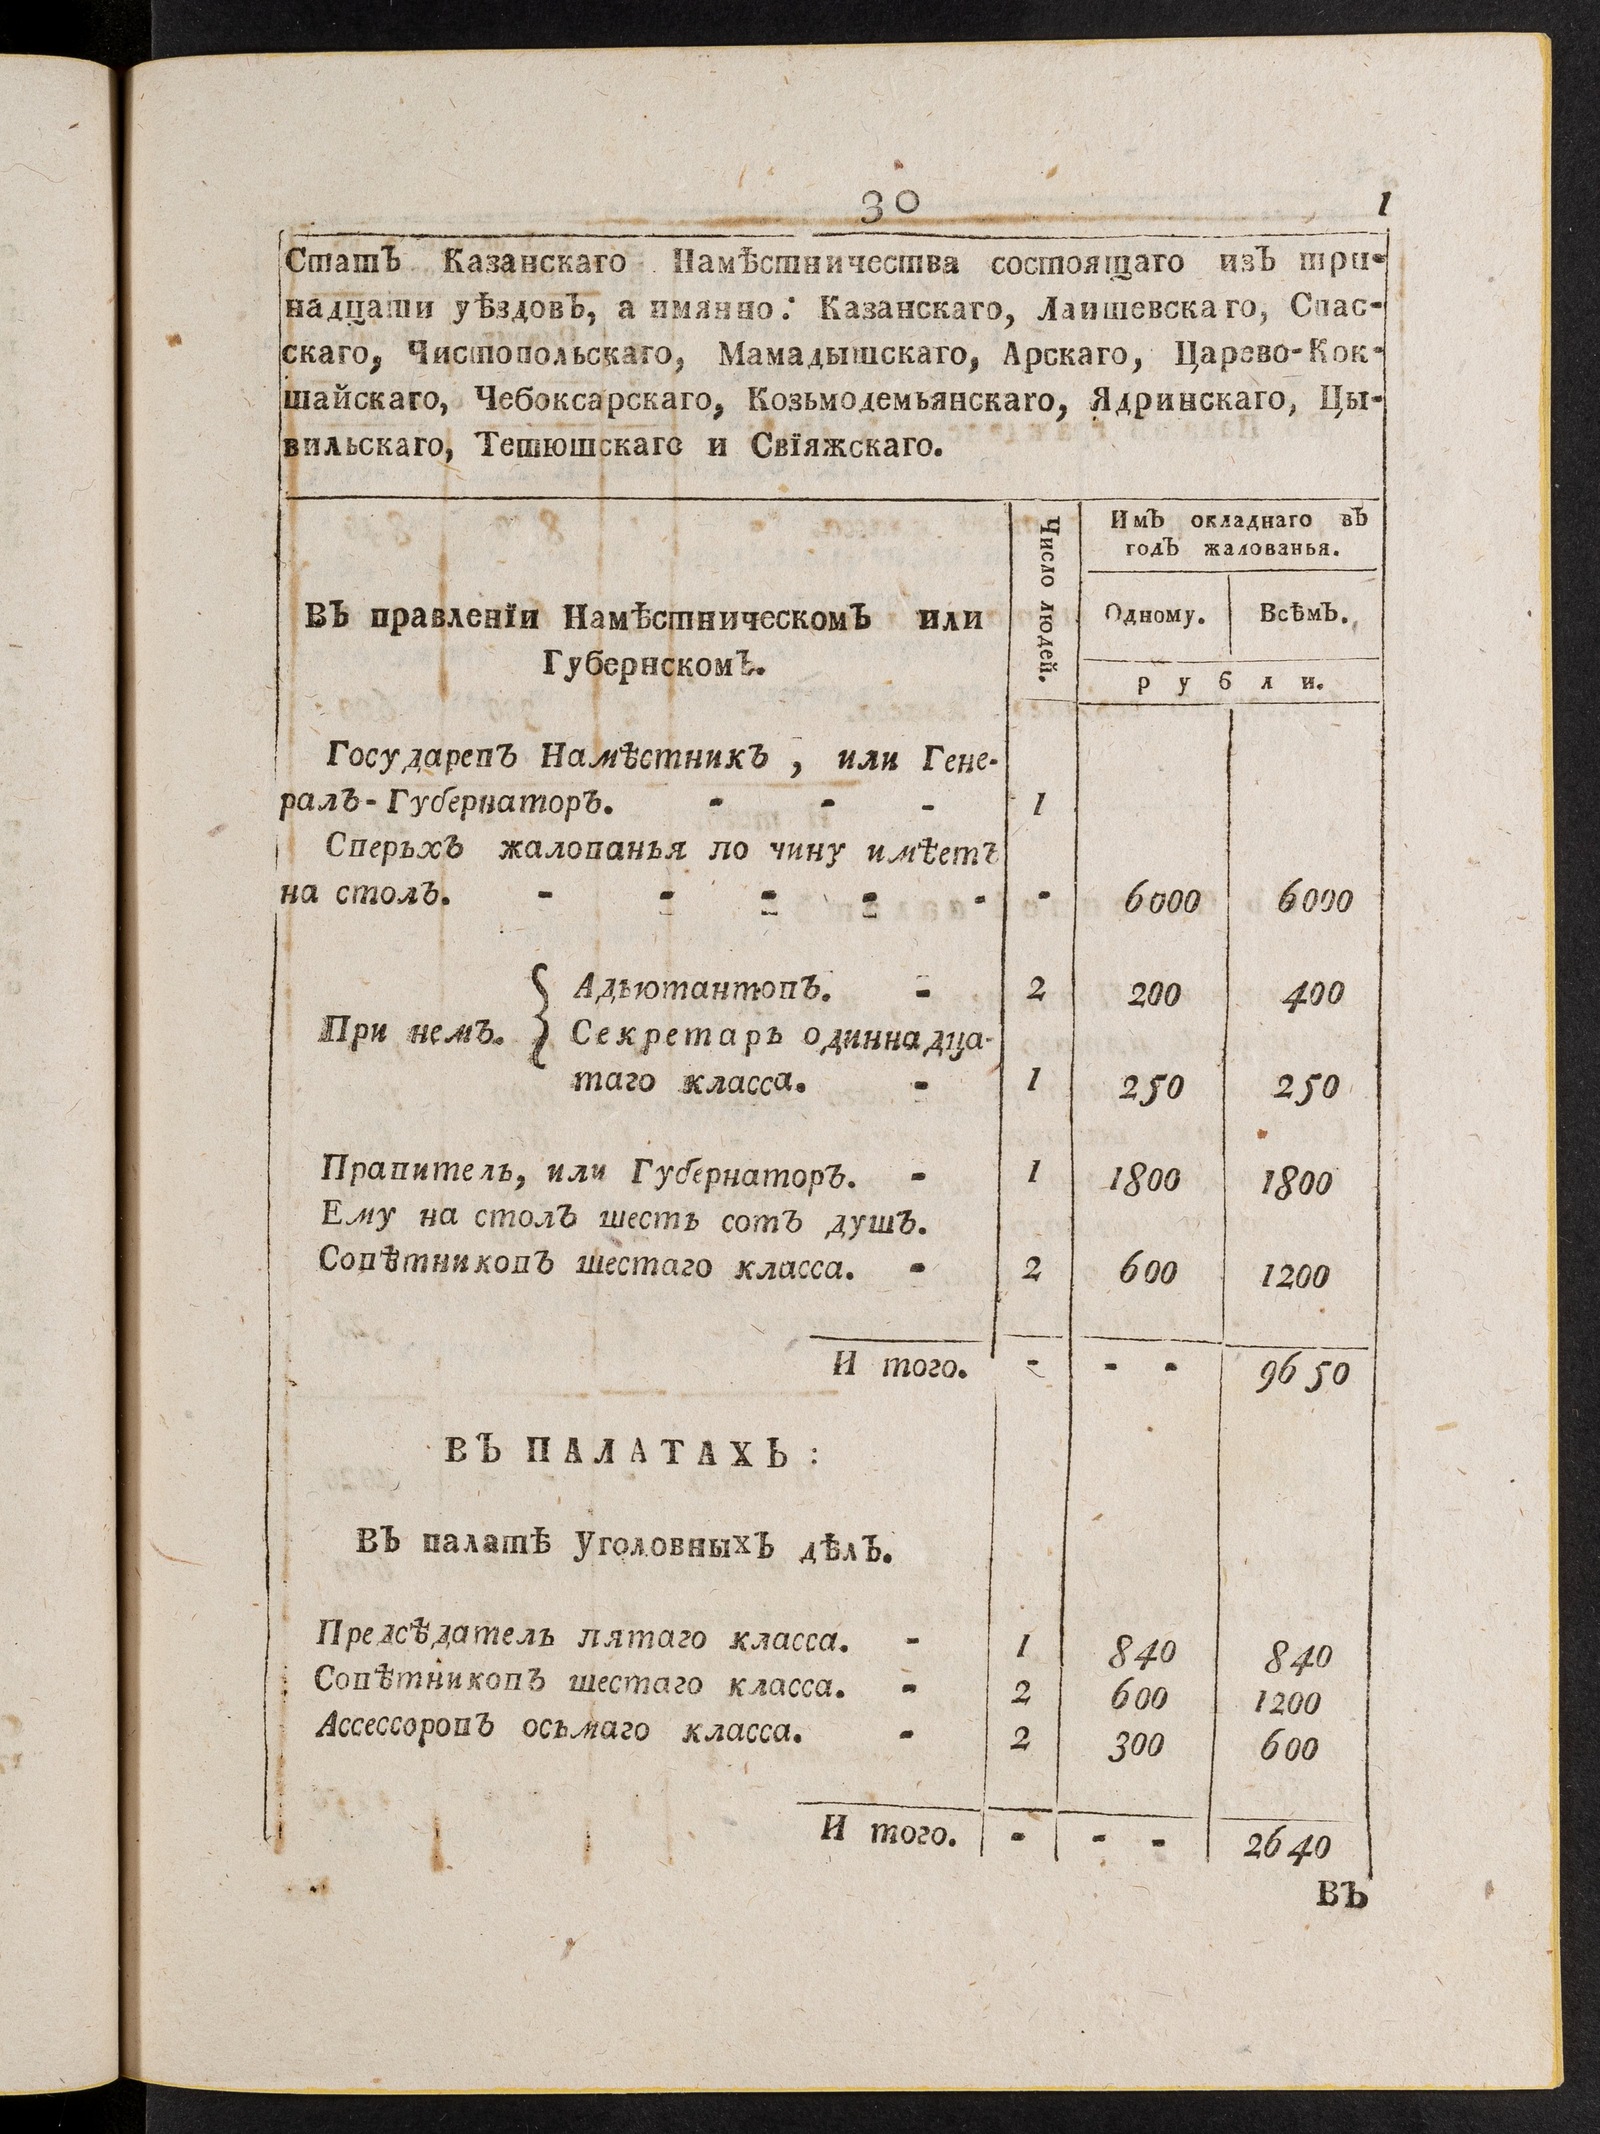 30 1
Статъ Казанскаго Намѣстничества состоящаго изъ три-
надцати уѣздовъ, а имянно: Казанскаго, Лаишевскаго, Спас-
скаго, Чистопольскаго, Мамадышскаго, Арскаго, Царево-Кок-
шайскаго, Чебоксарскаго, Козьмодемьянскаго, Ядринскаго, Цы-
вильскаго, Тетюшскаго и Свіяжскаго.
Въ правленіи Намѣстническомъ или
Губернскомъ.
Число людей.
Имъ окладнаго въ
годъ жалованья.
Одному. Всѣмъ.
рубли.
Государевъ Намѣстникъ, или Гене-
ралъ-Губернаторъ. - - - 1
Сверьхъ жалованья по чину имѣетъ
на столъ. - - - - - - 6000 6000
Адьютантовъ. - 2 200 400
При немъ. { Секретарь одиннадца-
таго класса. - 1 250 250
Правитель, или Губернаторъ. - 1 1800 1800
Ему на столъ шесть сотъ душъ.
Совѣтниковъ шестаго класса. - 2 600 1200
И того. - - - 9650
ВЪ ПАЛАТАХЪ:
Въ палатѣ Уголовныхъ дѣлъ.
Предсѣдатель пятаго класса. - 1 840 840
Совѣтниковъ шестаго класса. - 2 600 1200
Ассессоровъ осьмаго класса. - 2 300 600
И того. - - - 2640
Въ